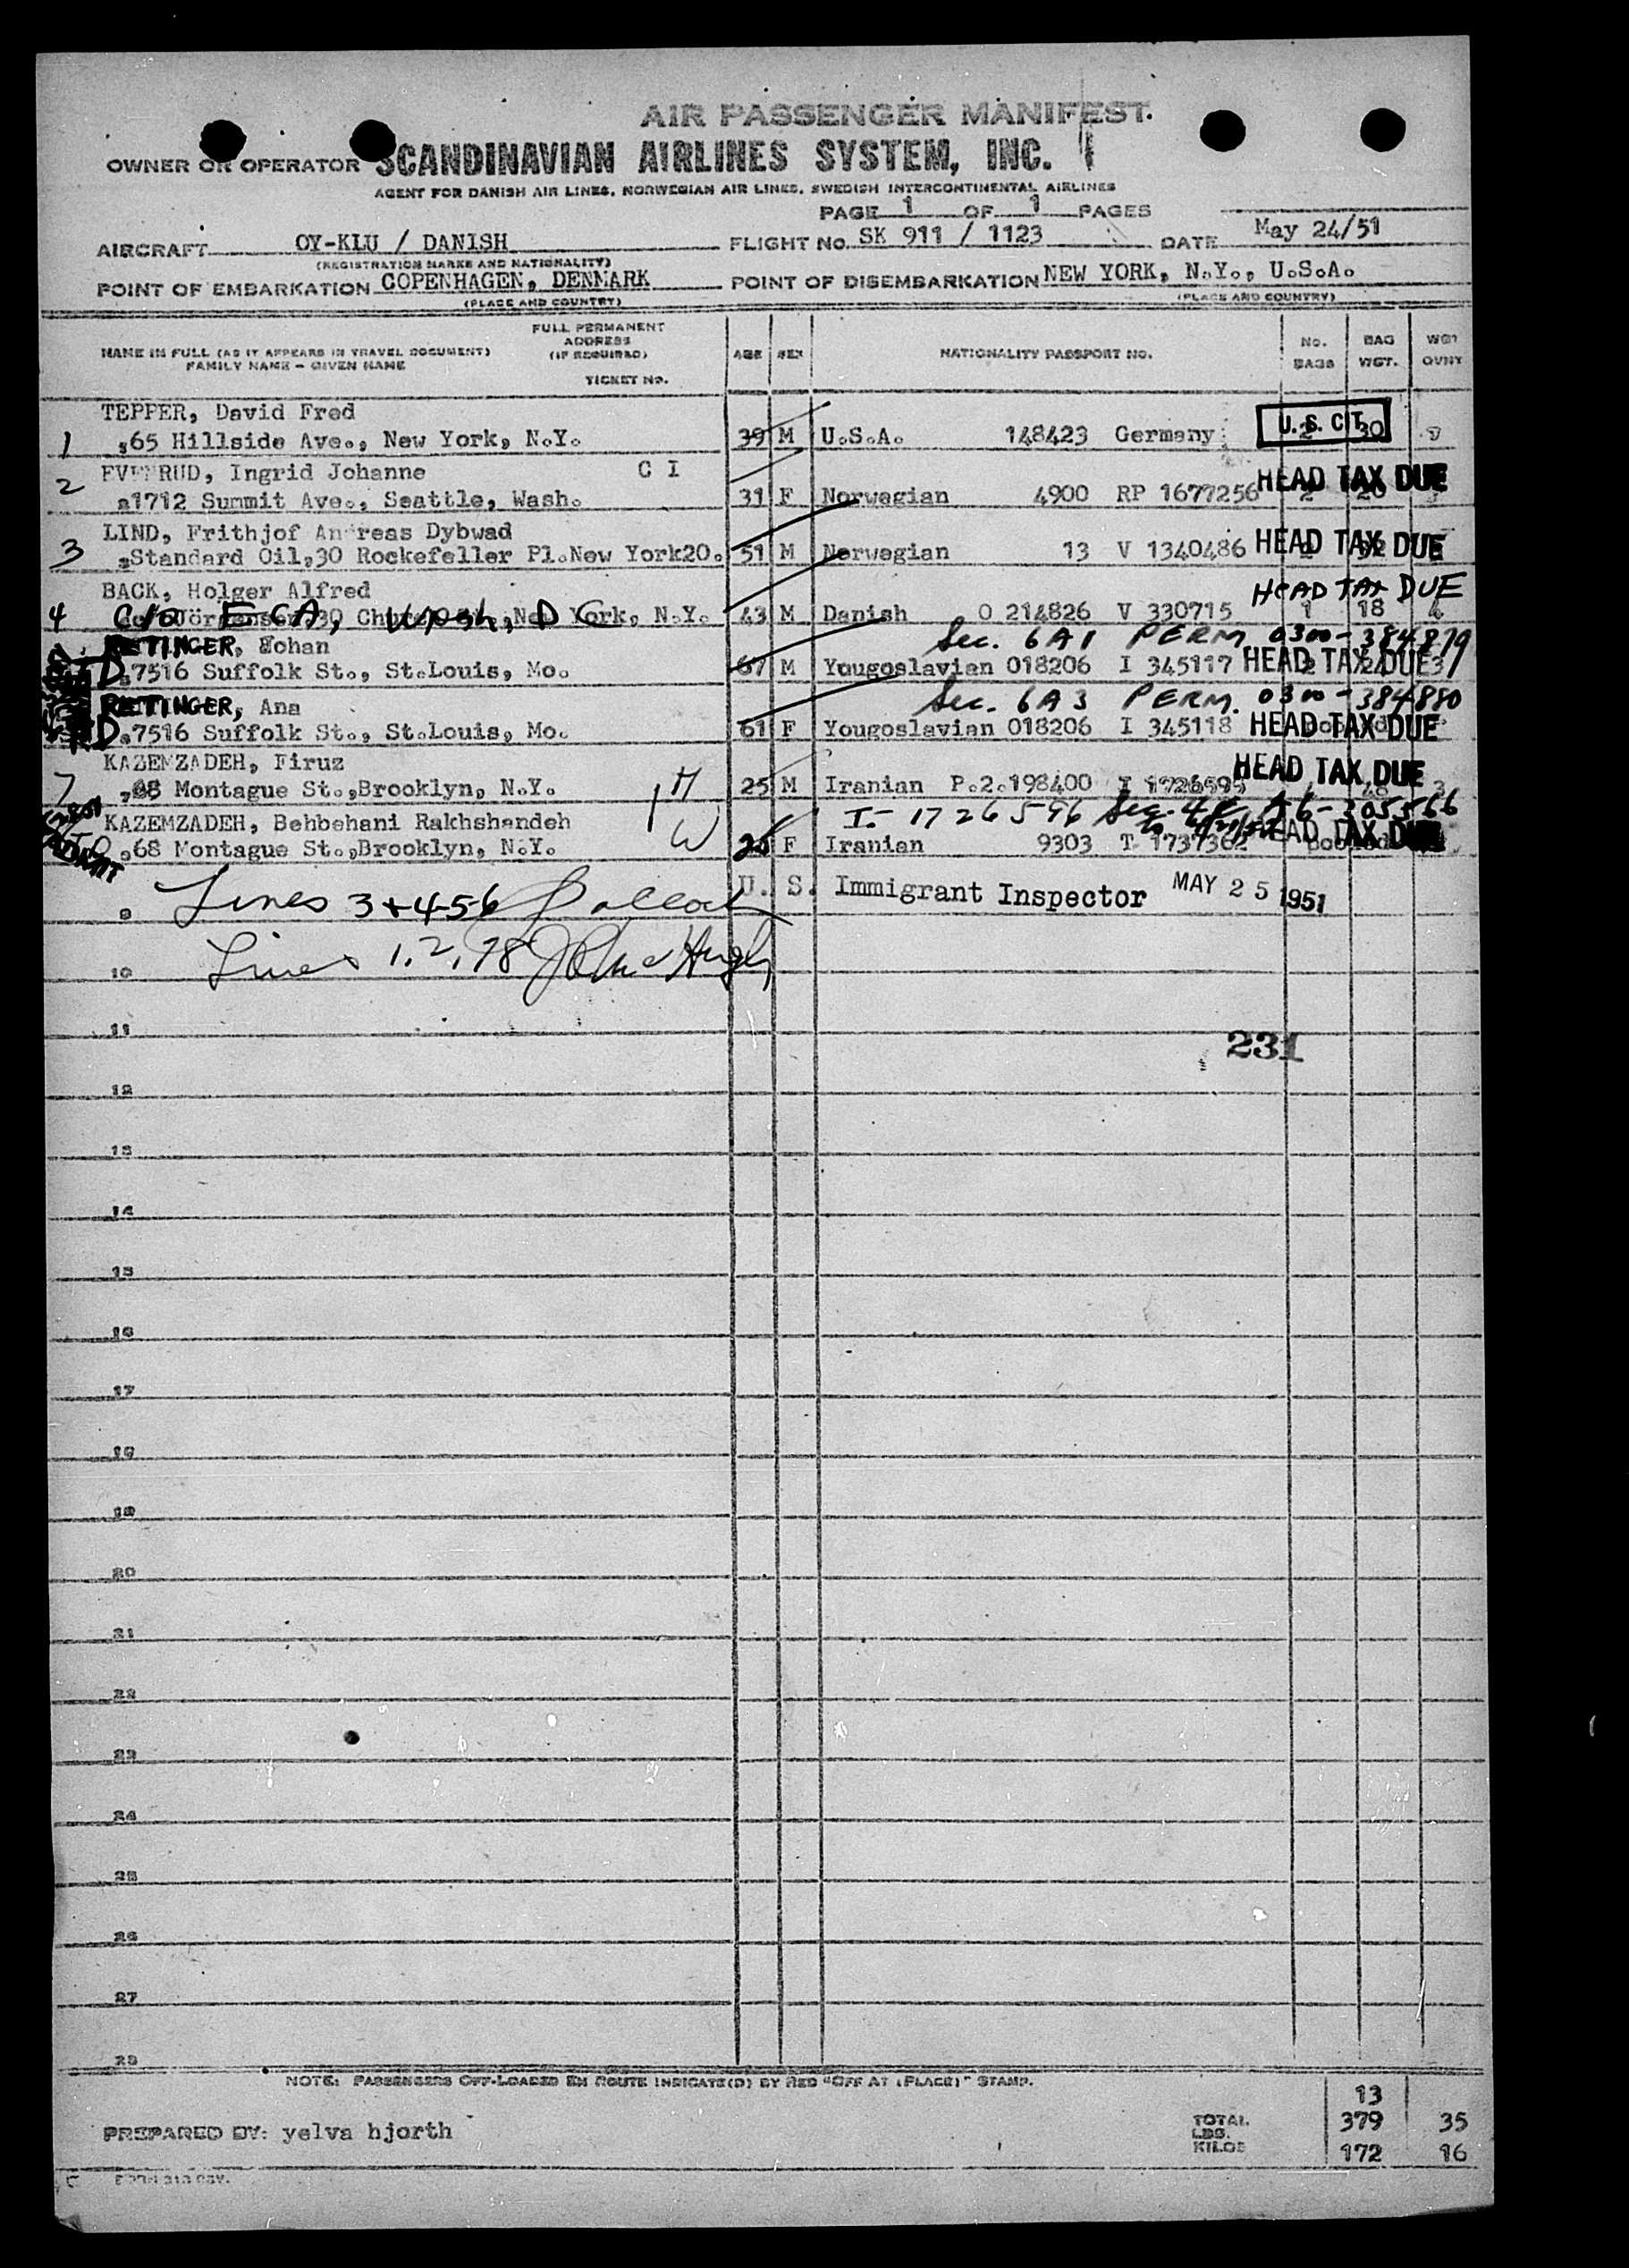 AIR PASSENGER MANIFEST.
OWNER OR OPERATOR SCANDINAVIAN AIRLINES SYSTEM, INC.
AGENT FOR DANISH AIR LINES, NORWEGIAN AIR LINES, SWEDISH INTERCONTINENTAL AIRLINES
PAGE 1 OF 1 PAGES
AIRCRAFT OY-KLU / DANISH FLIGHT NO. SK 911 / 1123 DATE May 24/51
(REGISTRATION MARKS AND NATIONALITY)
POINT OF EMBARKATION COPENHAGEN, DENMARK POINT OF DISEMBARKATION NEW YORK, N.Y., U.S.A.
(PLACE AND COUNTRY) (PLACE AND COUNTRY)
NAME IN FULL (AS IT APPEARS IN TRAVEL DOCUMENT) FAMILY NAME - GIVEN NAME FULL PERMANENT ADDRESS (IF REQUIRED) TICKET NO. AGE SEX NATIONALITY PASSPORT NO. No. BAGS BAG WGT. WGT OVNT
TEPPER, David Fred
1 65 Hillside Ave., New York, N.Y. 39 M U.S.A. 148423 Germany U.S. CIT. 2 30
EVENRUD, Ingrid Johanne C I
2 1712 Summit Ave., Seattle, Wash. 31 F Norwegian 4900 RP 1677256 HEAD TAX DUE
LIND, Frithjof Andreas Dybwad
3 Standard Oil, 30 Rockefeller Pl. New York 20. 51 M Norwegian 13 V 1340486 HEAD TAX DUE
BACK, Holger Alfred HEAD TAX DUE
4 c/o ECA, Wash, D C York, N.Y. 43 M Danish O 214826 V 330715 1 18 4
RETINGER, Johan Sec. 6A1 PERM 0300-384879
D 7516 Suffolk St., St.Louis, Mo. 67 M Yougoslavian 018206 I 345117 HEAD TAX DUE
RETTINGER, Ana Sec. 6A3 PERM. 0300-384880
D 7516 Suffolk St., St.Louis, Mo. 61 F Yougoslavian 018206 I 345118 HEAD TAX DUE
KAZEMZADEH, Firuz HEAD TAX DUE
7 68 Montague St., Brooklyn, N.Y. H 25 M Iranian P.2.198400 I 1726595
KAZEMZADEH, Behbehani Rakhshandeh I-1726596 A6-305566
68 Montague St., Brooklyn, N.Y. W 26 F Iranian 9303 T 1737362 HEAD TAX DUE
U. S. Immigrant Inspector MAY 25 1951
9 Lines 3+4-5-6
10 Lines 1, 2, 78
11
231
12
13
14
15
16
17
18
19
20
21
22
23
24
25
26
27
28
NOTE: PASSENGERS OFF-LOADED EN ROUTE INDICATE(D) BY RED "OFF AT (PLACE)" STAMP.
13
PREPARED BY: yelva hjorth TOTAL LBS. 379 35
KILOS 172 16